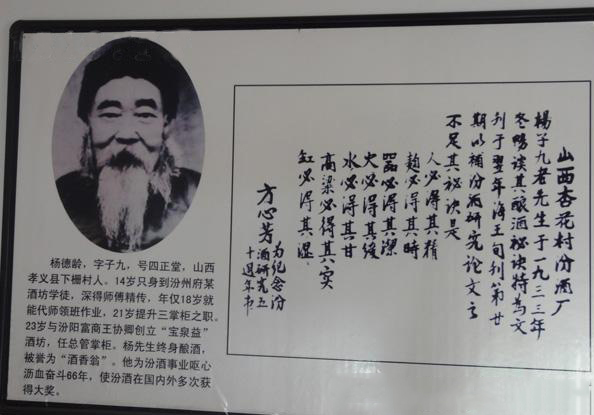 杨德龄，字子九，号四正堂，山西
孝义县下栅村人。14岁只身到汾州府某
酒坊学徒，深得师傅精传，年仅18岁就
能代师领班作业，21岁提升三掌柜之职。
23岁与汾阳富商王协卿创立“宝泉益”
酒坊，任总管掌柜。杨先生终身酿酒，
被誉为“酒香翁”。他为汾酒事业呕心
沥血奋斗66年，使汾酒在国内外多次获
得大奖。
山西杏花村汾酒厂
楊子九老先生于一九三三年
冬暢谈其酿酒秘诀特为文
刊于翌年海王旬刊第廿
期以補汾酒研究论文之
不足其祕诀是
人必得其精
麯必得其時
器必得其潔
火必得其缓
水必得其甘
高粱必得其实
缸必得其湿
方心芳
为纪念汾
酒研究五
十週年书